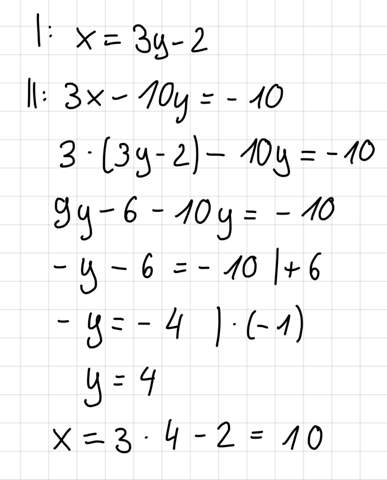 I: x = 3y - 2
II: 3x - 10y = -10
3 · (3y - 2) - 10y = -10
9y - 6 - 10y = -10
-y - 6 = -10 | + 6
-y = -4 | · (-1)
y = 4
x = 3 · 4 - 2 = 10